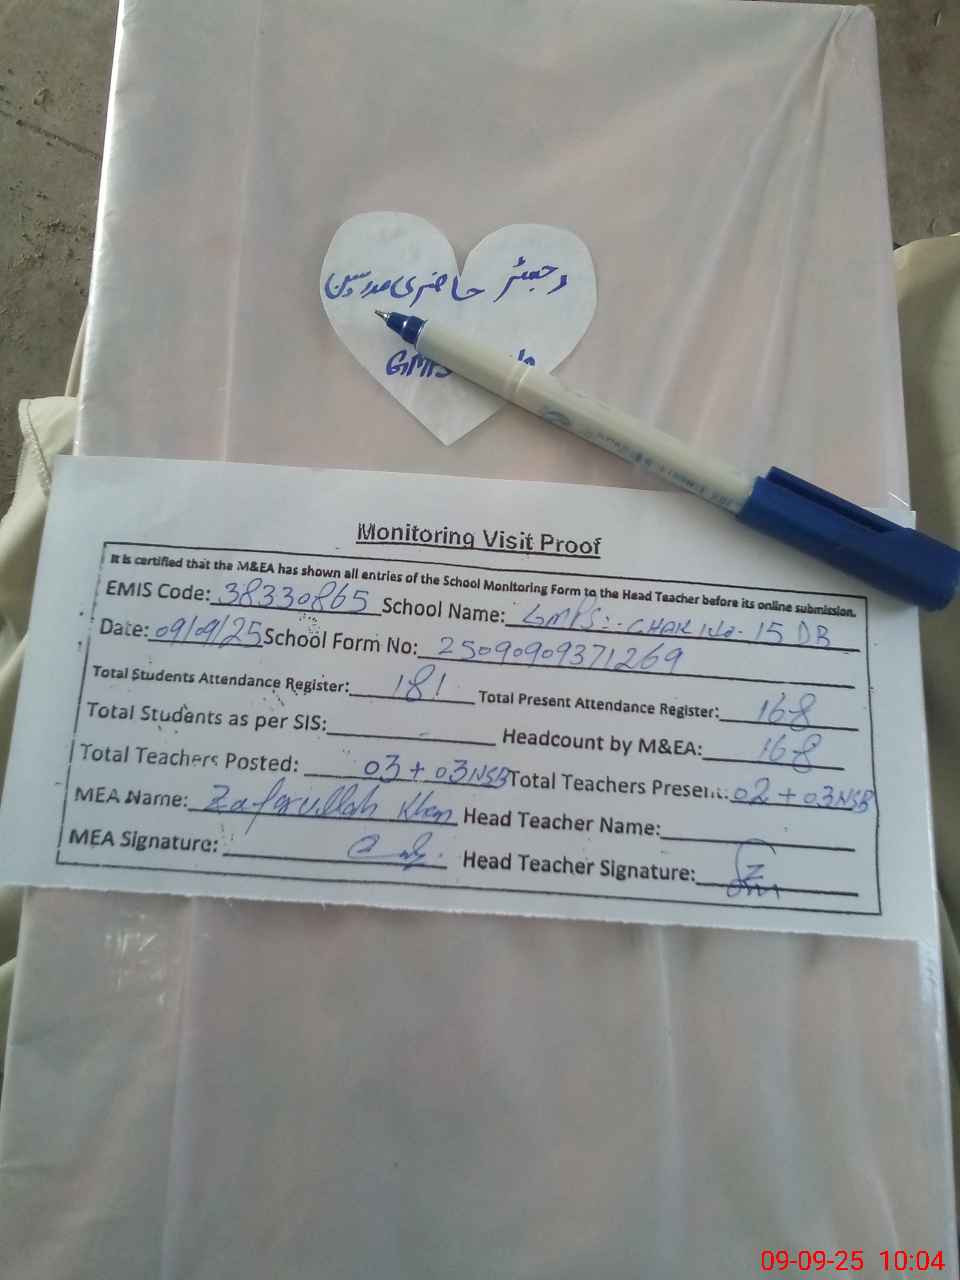 رجسٹر حاضری مدرسین
GMPS
Monitoring Visit Proof
It is certified that the M&EA has shown all entries of the School Monitoring Form to the Head Teacher before its online submission.
EMIS Code: 38330865 School Name: GMPS:- CHAK No. 15 DB
Date: 09/09/25 School Form No: 25090909371269
Total Students Attendance Register: 181 Total Present Attendance Register: 168
Total Students as per SIS: - Headcount by M&EA: 168
Total Teachers Posted: 03 + 03 NSB Total Teachers Present: 02 + 03 NSB
MEA Name: Zafarullah Khan Head Teacher Name:
MEA Signature: Head Teacher Signature:
09-09-25 10:04